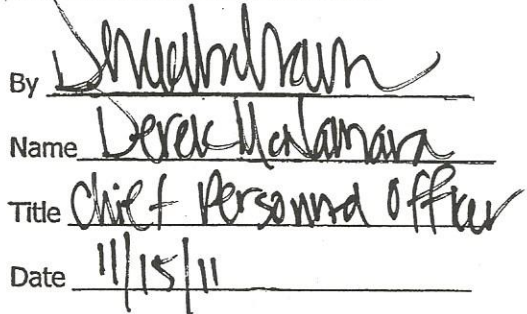 By
Name Derek McNamara
Title Chief Personnel Officer
Date 11/15/11